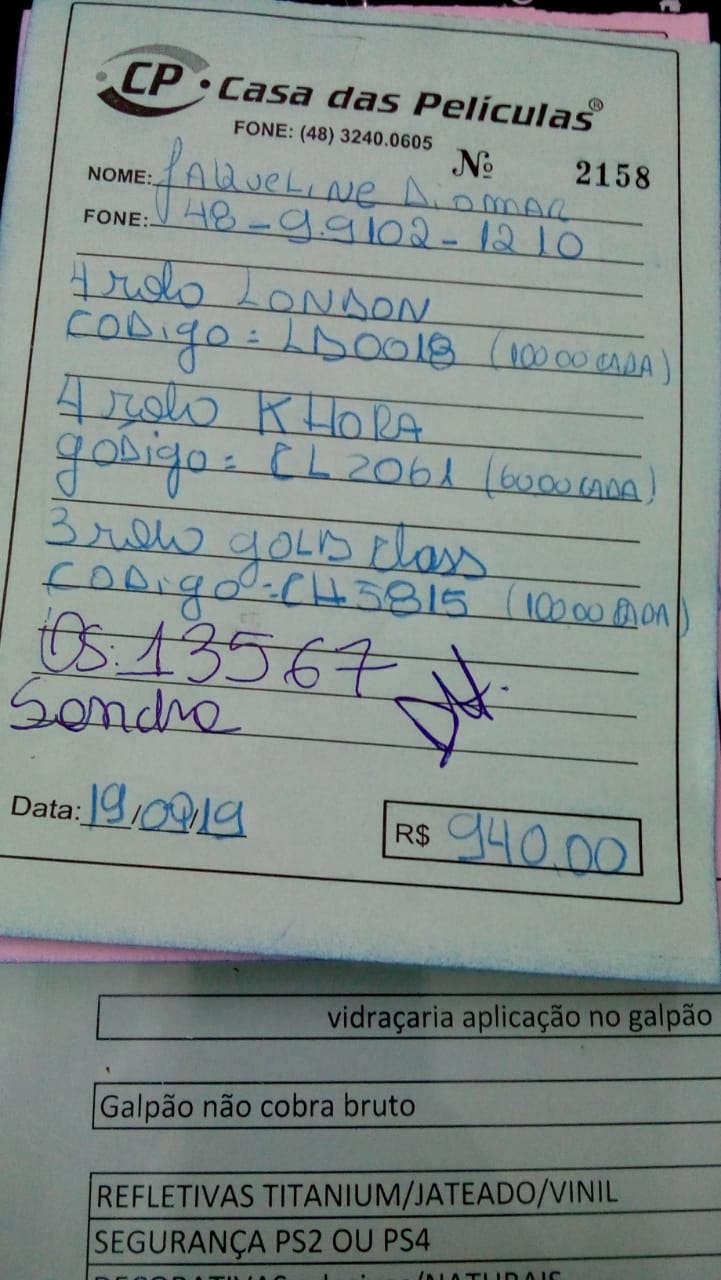 CP · Casa das Películas®
FONE: (48) 3240.0605
Nº 2158
NOME: JAQUELINE DIOMAR
FONE: 48-9.9102-1210
4 rolo LONDON
CODigo = LD0018 (100 00 CADA)
4 rolo KHORA
goDigo = CL2061 (60 00 CADA)
3 rolo gOLD Class
CODigo = CH5815 (100 00 CADA)
OS: 13567
Sandra
Data: 19/09/19
R$ 940.00
vidraçaria aplicação no galpão
Galpão não cobra bruto
REFLETIVAS TITANIUM/JATEADO/VINIL
SEGURANÇA PS2 OU PS4